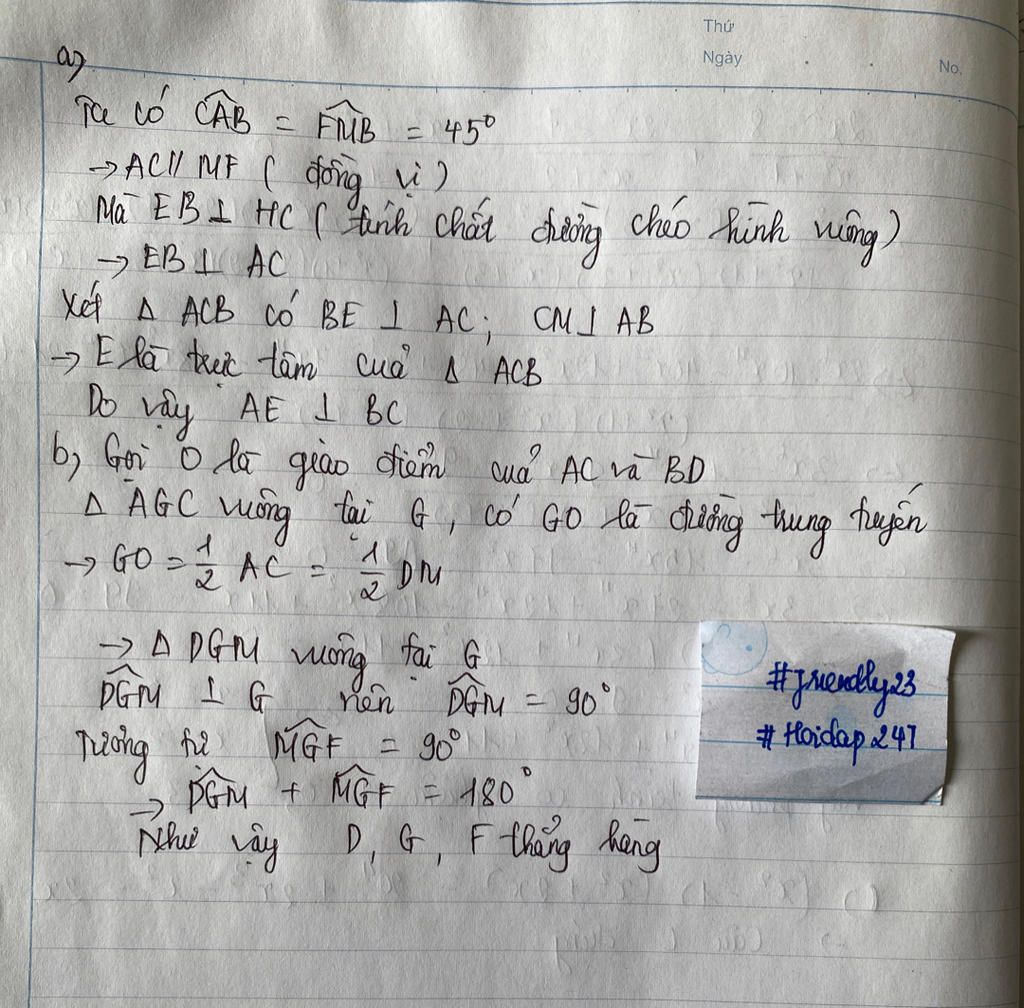 Thứ
Ngày . .
No.
a)
Ta có CAB = FMB = 45°
→ AC // MF ( đồng vị )
Mà EB ⊥ HC ( tính chất đường chéo hình vuông )
→ EB ⊥ AC
Xét Δ ACB có BE ⊥ AC ; CM ⊥ AB
→ E là trực tâm cuả Δ ACB
Do vậy AE ⊥ BC
b, Gọi O là giào điểm cuả AC và BD
Δ AGC vuông tại G , có GO là đường trung tuyến
→ GO = 1/2 AC = 1/2 DM
→ Δ DGM vuông tại G
DGM ⊥ G nên DGM = 90°
Tương tự MGF = 90°
→ DGM + MGF = 180°
Như vậy D, G, F thẳng hàng
#friendly23
#Hoidap247